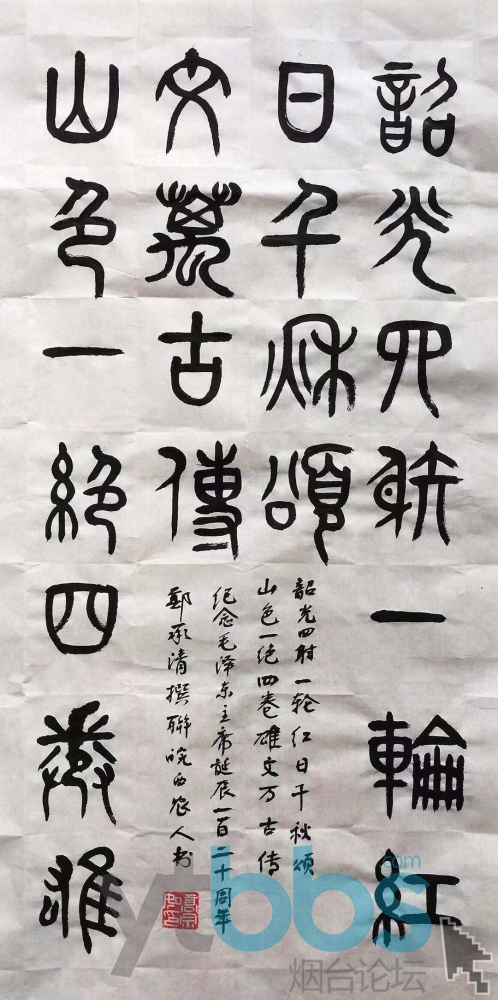 韶光四射一輪紅
日千秋頌
山色一絕四卷雄
文萬古傳
韶光四射一轮红日千秋颂
山色一绝四卷雄文万古传
纪念毛泽东主席诞辰一百二十周年
鄭承清撰聯皖西农人书
ytbbs.com
烟台论坛